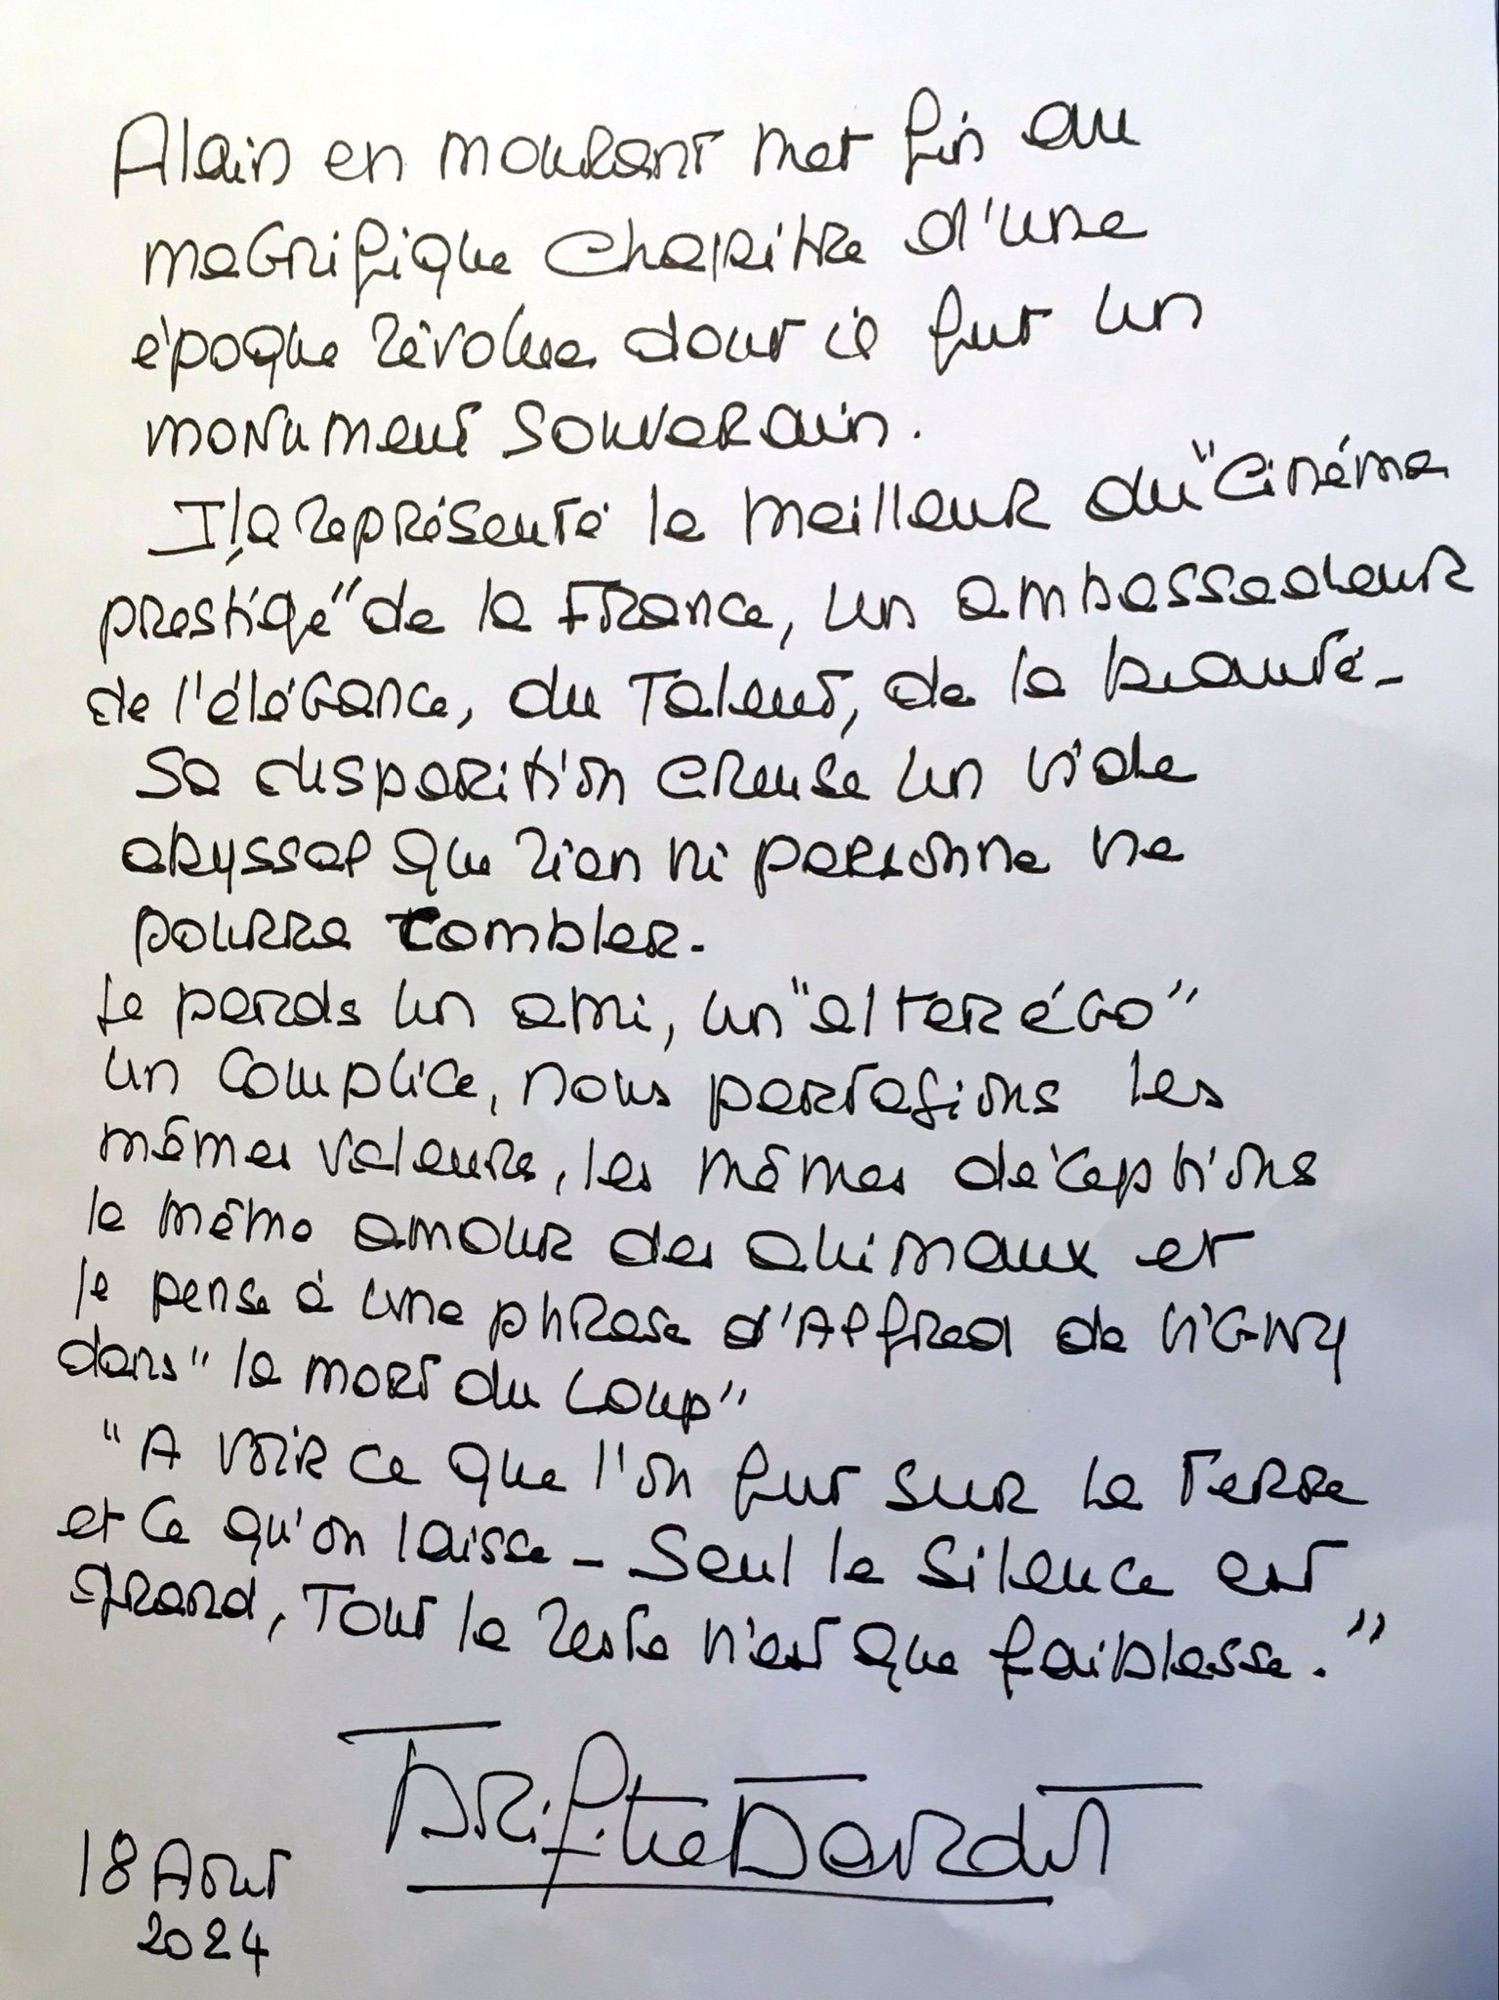 Alain en mourant met fin au
magnifique chapitre d'une
époque révolue dont il fut un
monument souverain.
Il a représenté le meilleur du "cinéma
prestige" de la France, un ambassadeur
de l'élégance, du Talent, de la beauté -
Sa disparition creuse un vide
abyssal que rien ni personne ne
pourra combler -
Je perds un ami, un "alter égo"
un complice, nous partagions les
mêmes valeurs, les mêmes déceptions
le même amour des animaux et
Je pense à une phrase d'Alfred de Vigny
dans "la mort du Loup"
"A voir ce que l'on fut sur la Terre
et ce qu'on laisse - Seul le Silence est
grand, Tout le reste n'est que faiblesse."
Brigitte Bardot
18 Août
2024